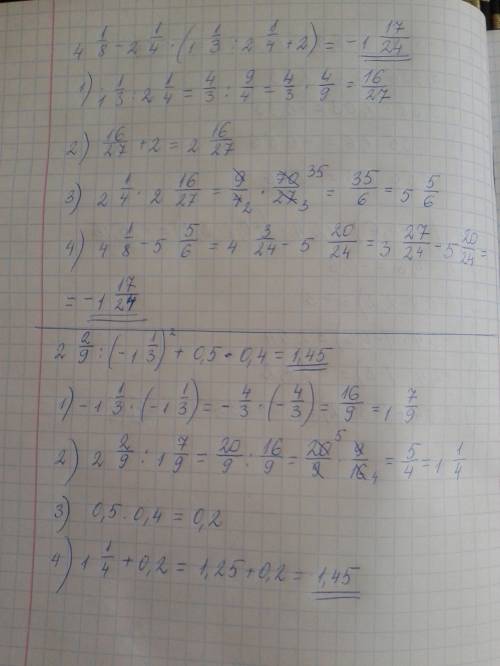 4 1/8 - 2 1/4 · (1 1/3 : 2 1/4 + 2) = -1 17/24
1) 1 1/3 : 2 1/4 = 4/3 : 9/4 = 4/3 · 4/9 = 16/27
2) 16/27 + 2 = 2 16/27
3) 2 1/4 · 2 16/27 = 9/4 2 · 70/27 35 3 = 35/6 = 5 5/6
4) 4 1/8 - 5 5/6 = 4 3/24 - 5 20/24 = 3 27/24 - 5 20/24 =
= -1 17/24
2 2/9 : (-1 1/3)² + 0,5 · 0,4 = 1,45
1) -1 1/3 · (-1 1/3) = -4/3 · (-4/3) = 16/9 = 1 7/9
2) 2 2/9 : 1 7/9 = 20/9 : 16/9 = 20/9 5 · 9/16 4 = 5/4 = 1 1/4
3) 0,5 · 0,4 = 0,2
4) 1 1/4 + 0,2 = 1,25 + 0,2 = 1,45